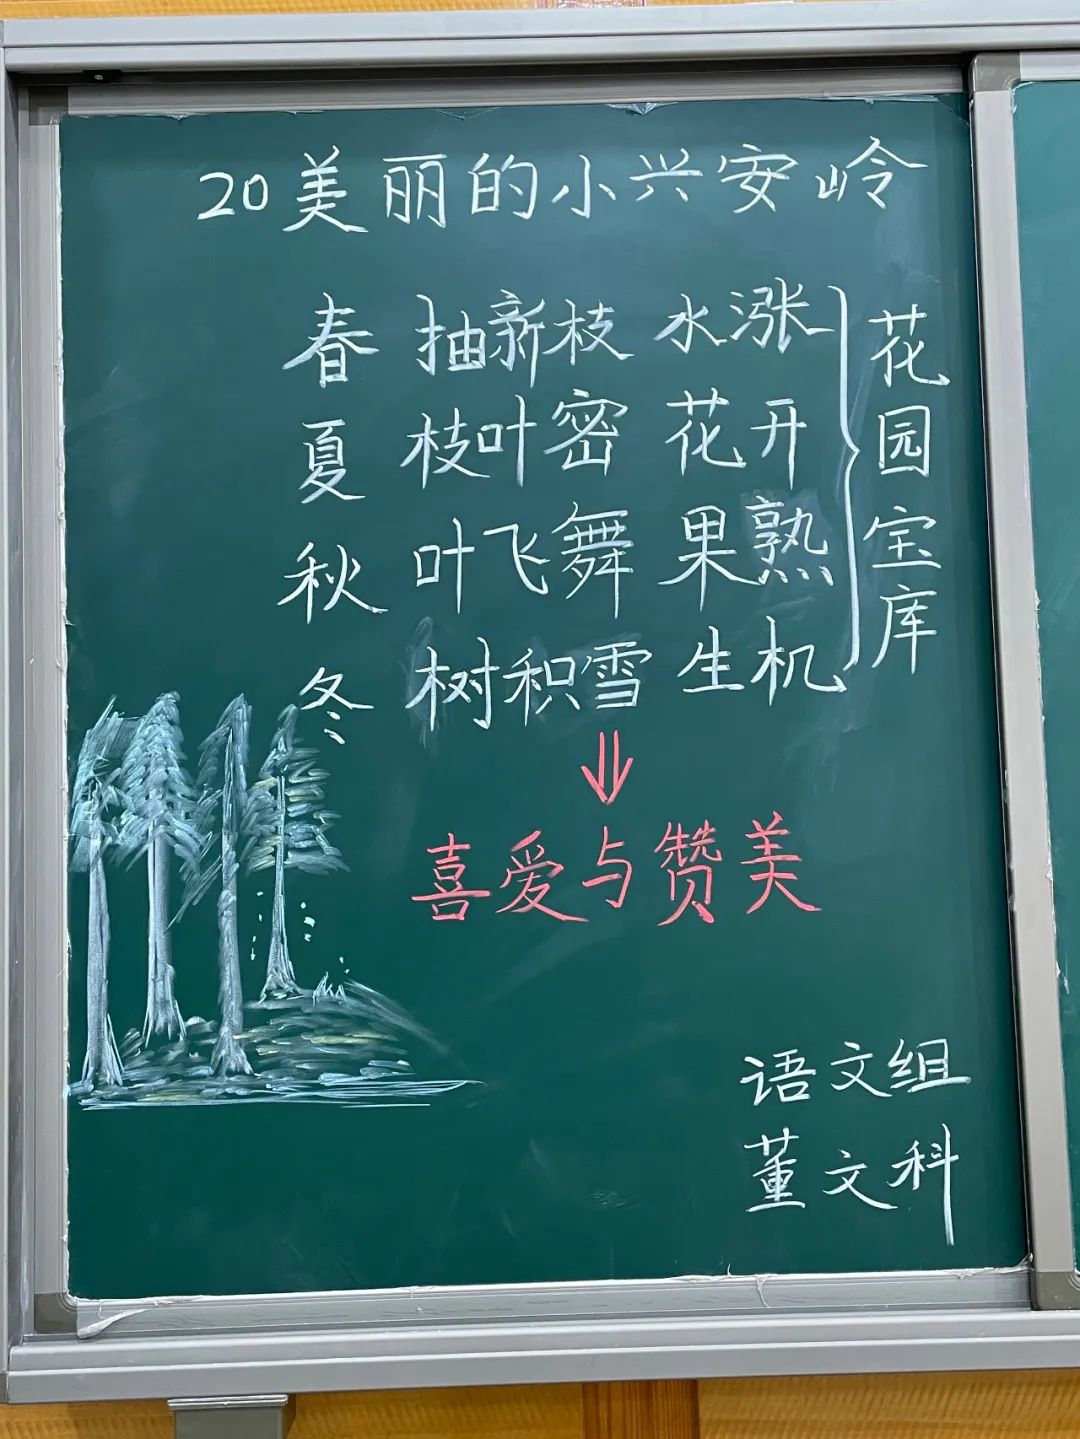 20美丽的小兴安岭
春 抽新枝 水涨
夏 枝叶密 花开
秋 叶飞舞 果熟
冬 树积雪 生机
花园宝库
喜爱与赞美
语文组
董文科